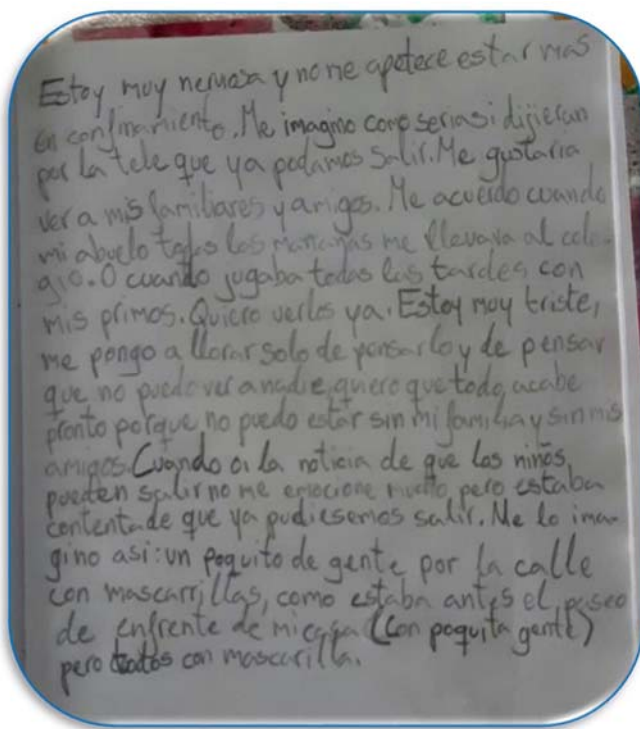 Estoy muy nerviosa y no me apetece estar mas
en confinamiento. Me imagino como seria si dijieran
por la tele que ya podamos salir. Me gustaria
ver a mis familiares y amigos. Me acuerdo cuando
mi abuelo todas las mañanas me llevava al cole-
gio. O cuando jugaba todas las tardes con
mis primos. Quiero verlos ya. Estoy muy triste,
me pongo a llorar solo de pensarlo y de pensar
que no puedo ver a nadie, quiero que todo acabe
pronto porque no puedo estar sin mi familia y sin mis
amigos. Cuando oi la noticia de que los niños
pueden salir no me emocione mucho pero estaba
contenta de que ya pudiesemos salir. Me lo ima-
gino asi: un poquito de gente por la calle
con mascarrillas, como estaba antes el paseo
de enfrente de mi casa (con poquita gente)
pero todos con mascarilla.